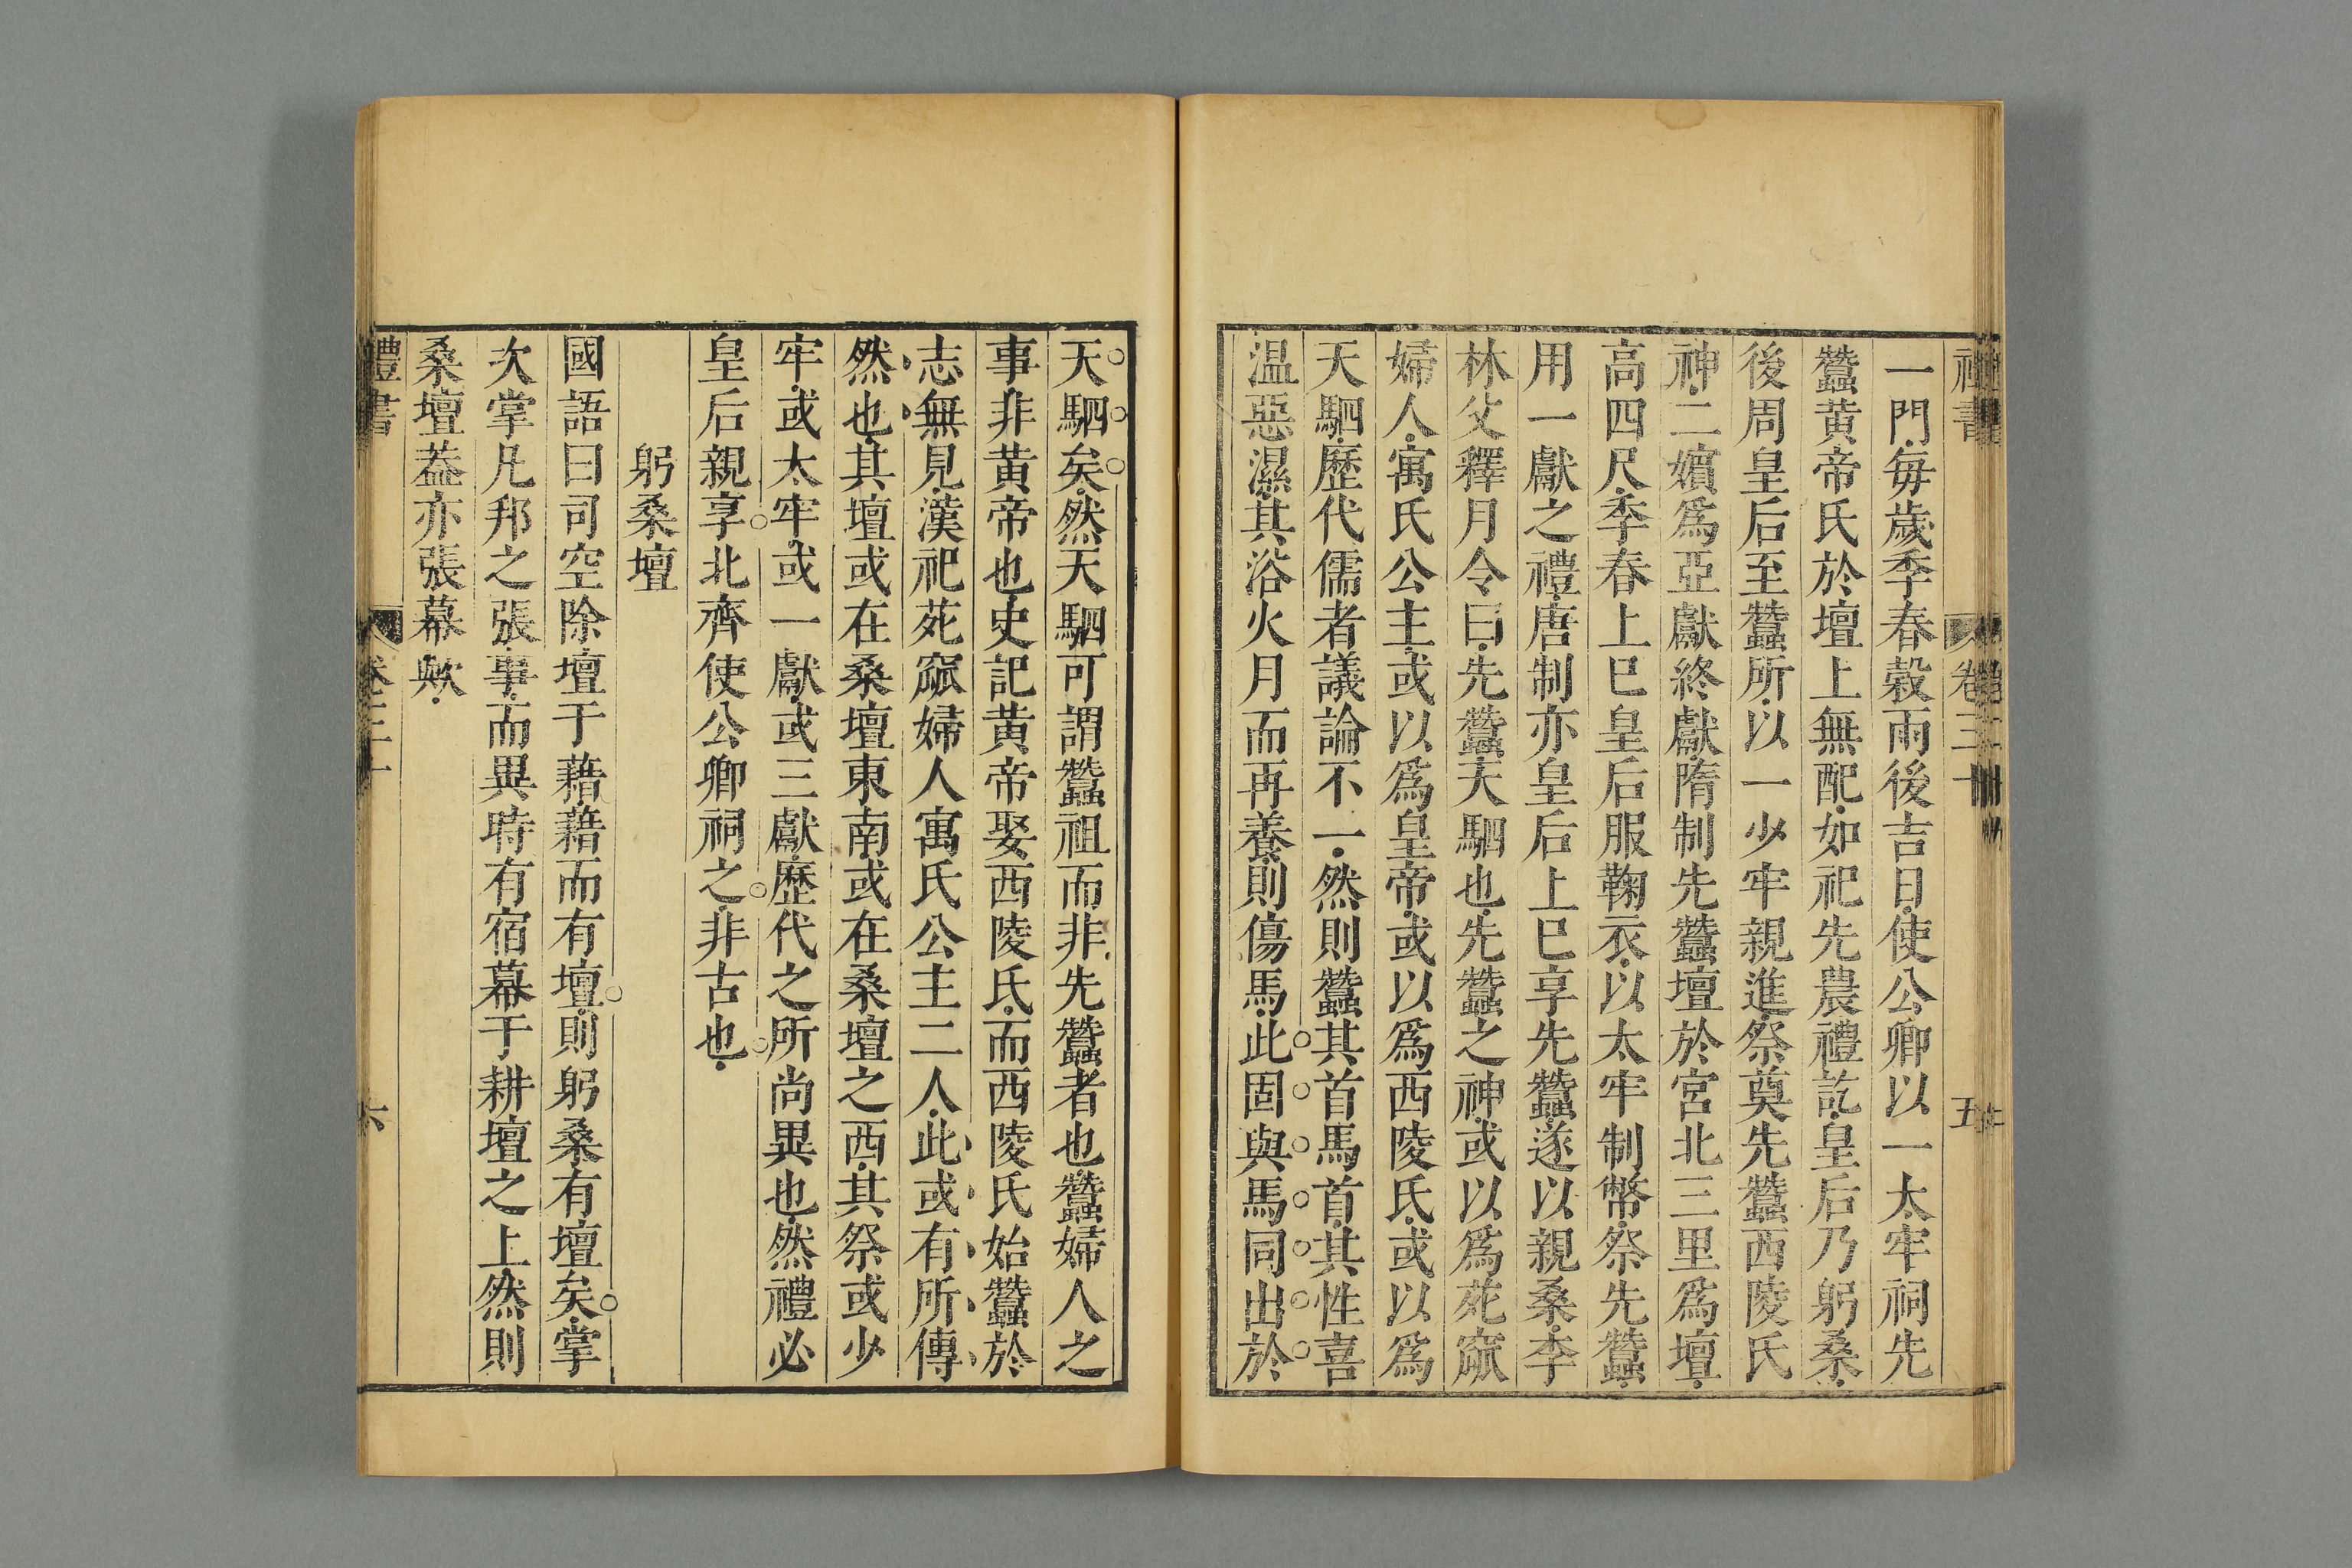 一門每歲季春穀雨後吉日使公卿以一太牢祠先
蠶黃帝氏於壇上無配如祀先農禮訖皇后乃躬桑
後周皇后至蠶所以一少牢親進祭奠先蠶西陵氏
神二嬪爲亞獻終獻隋制先蠶壇於宮北三里爲壇
高四尺季春上巳皇后服鞠衣以太牢制幣祭先蠶
用一獻之禮唐制亦皇后上巳享先蠶遂以親桑李
林父釋月令曰先蠶天駟也先蠶之神或以爲苑窳
婦人寓氏公主或以爲皇帝或以爲西陵氏或以爲
天駟歷代儒者議論不一然則蠶其首馬首其性喜
温惡濕其浴火月而再養則傷馬此固與馬同出於
天駟矣然天駟可謂蠶祖而非先蠶者也蠶婦人之
事非黃帝也史記黃帝娶西陵氏而西陵氏始蠶於
志無見漢祀苑窳婦人寓氏公主二人此或有所傳
然也其壇或在桑壇東南或在桑壇之西其祭或少
牢或太牢或一獻或三獻歷代之所尚異也然禮必
皇后親享北齊使公卿祠之非古也
躬桑壇
國語曰司空除壇于藉藉而有壇則躬桑有壇矣掌
次掌凡邦之張事而異時有宿幕于耕壇之上然則
桑壇葢亦張幕歟
禮書
卷三十
六